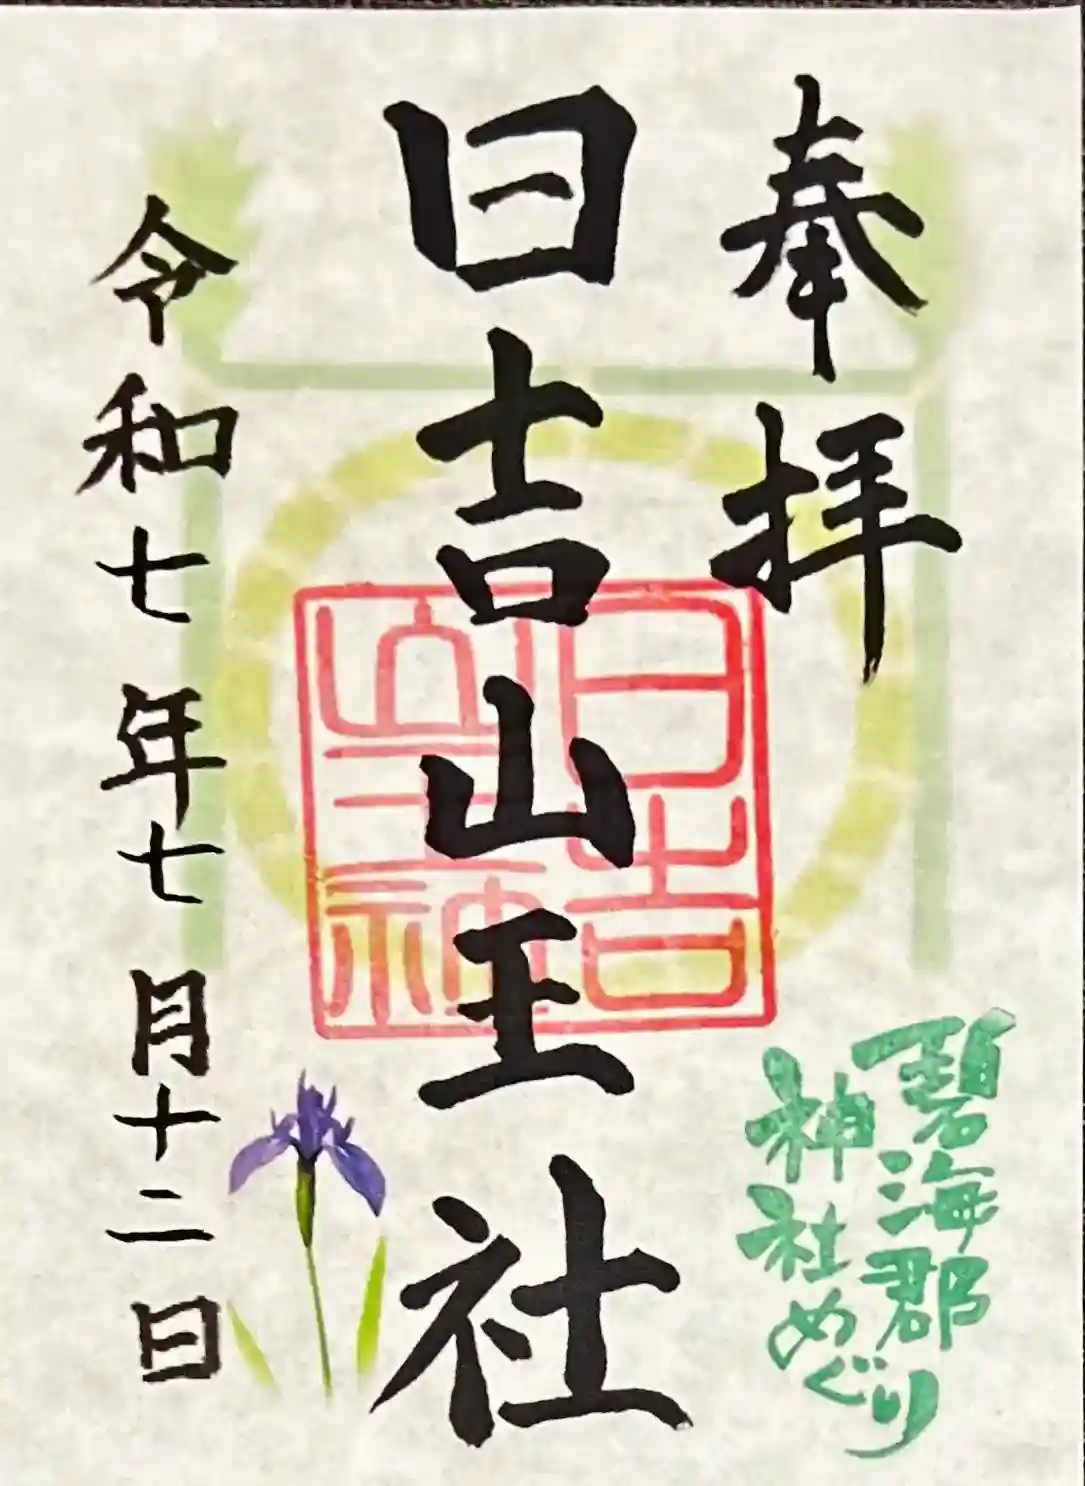 奉拝
日吉山王社
日吉
山王神社
令和七年七月十二日
碧海郡
神社めぐり